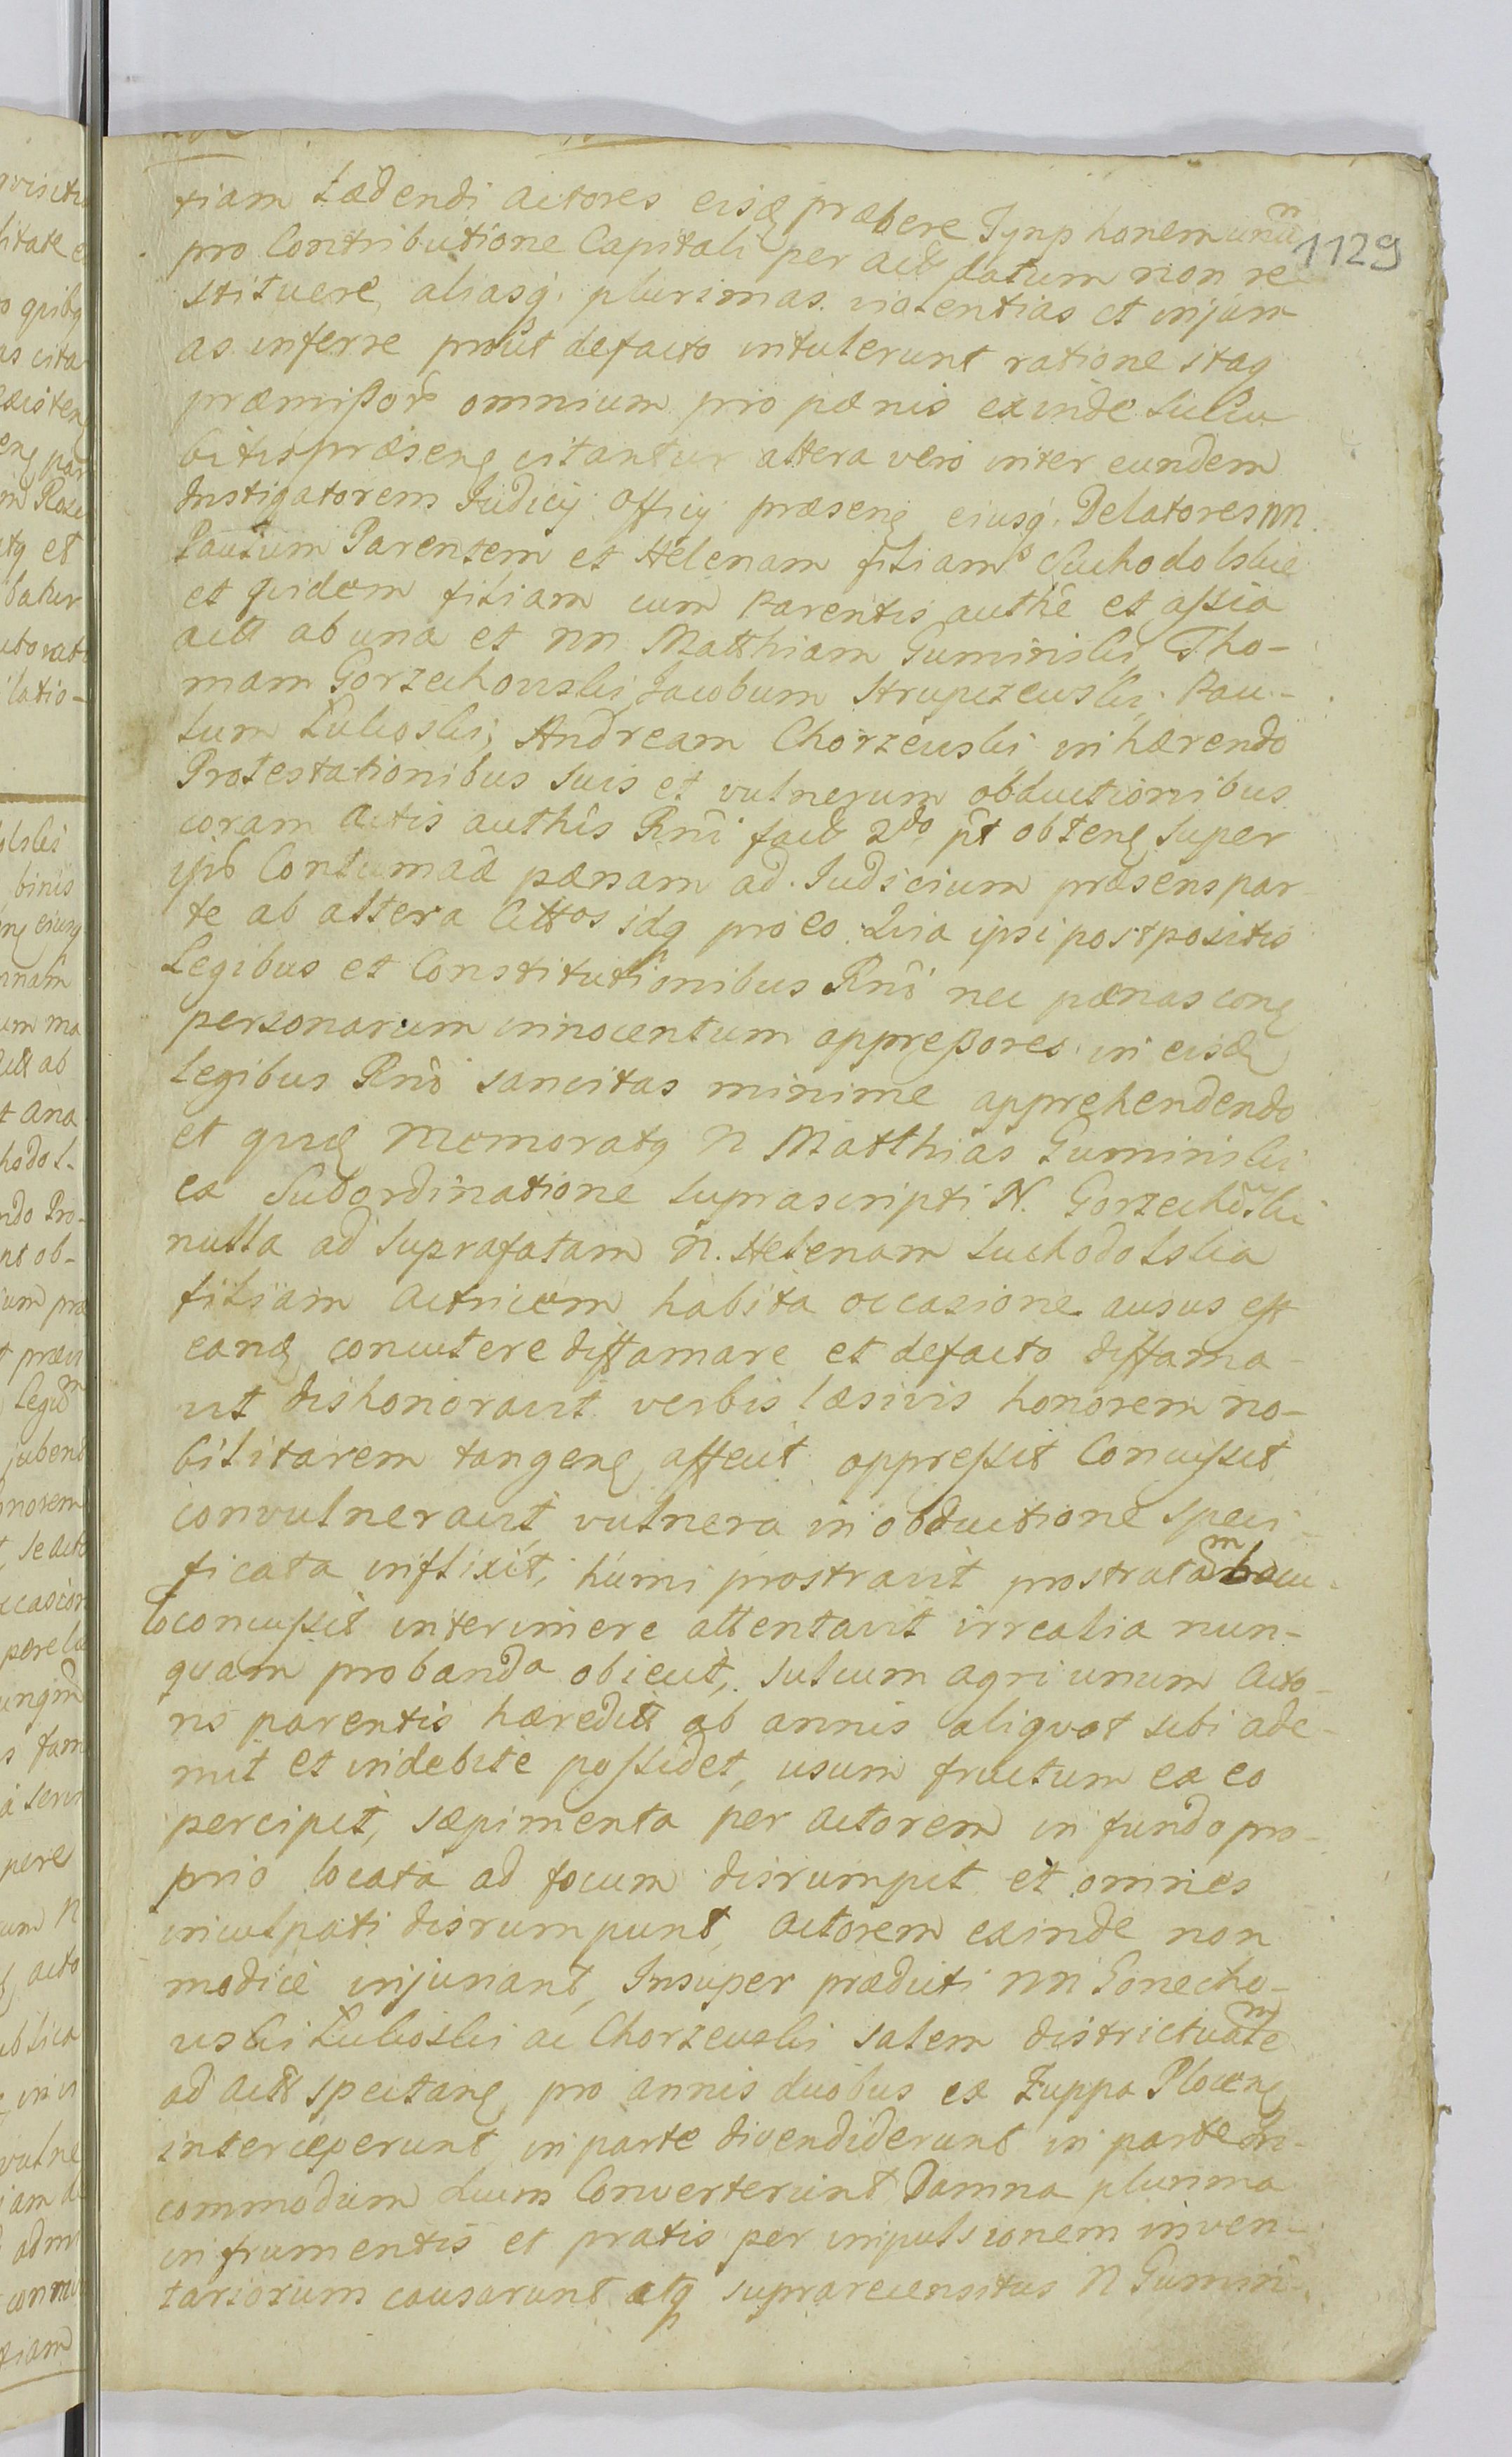 1129
tiam Lædendi actores eisq præbere Tynphonem unũ
pro Contributione Capitali per actt datum non re
stituere, aliasq. plurimas violentias et injuri
as inferre prout defacto intulerunt ratione itaq
præmissor omnium pro pænis exinde succu
bitis præsens citantur altera vero inter eundem
Instigatorem Judicij Officij præsens eiusq. Delatores nn
Paulum Parentem et Helenam filiam Suchodolskie
et quidem filiam cum Parentis authê et assia
actt ab una et nn Matthiam Guminski, Tho-
mam Gorzechowski Jacobum Strupczewski, Pau-
lum Lukoski, Andream Chorzewski inhærendo
Protestationibus suis et vulnerum obductionibus
coram Actis authis Rni fact 2do pt obtens super
ipso Contumaciæ pænam ad Judicium præsens par
te ab altera Cittos idq pro eo Quia ipsi postpositis
Legibus et Constitutionibus Rni nec pænas cong
personarum innocentum oppressores in eisd
legibus Rni sancitas minime apprehendendo
et quid memoratq N Matthias Guminski
ex Subordinatione suprascripti N. Gorzechowski
nulla ad suprafatam N. Helenam Suchodolska
filiam actricem habita occasione ausus est
eand concutere diffamare et defacto diffama
vit dishonoravit verbis læsivis honorem no-
bilitarem tangens affecit oppressit Concussit
convulneravit, vulnera in obductione speci-
ficata inflixit, humi prostravit prostratam bacu-
lo concussit interimere attentavit irrealia nun-
quam probanda obiecit, sulcum agri unum acto-
ris parentis hæreditt ab annis aliquot sibi ade-
mit et indebite possidet, usum fructum ex eo
percipit, sæpimenta per actorem in fundo pro-
prio locata ad focum disrumpit et omnes
inculpati disrumpunt, actorem exinde non
modice injuriant, Insuper prædicti nn Gorzecho-
wski Lukoski ac Chorzewski salem districtualem
ad actt spectans pro annis duobus ex Zuppa Plocens
interceperunt, in parte divendiderunt in parte in
commodum suum Converterunt Damna plurima
in frumentis et pratis per impulsionem inven-
tariorum causarunt atq suprarecensitus N Gumin-